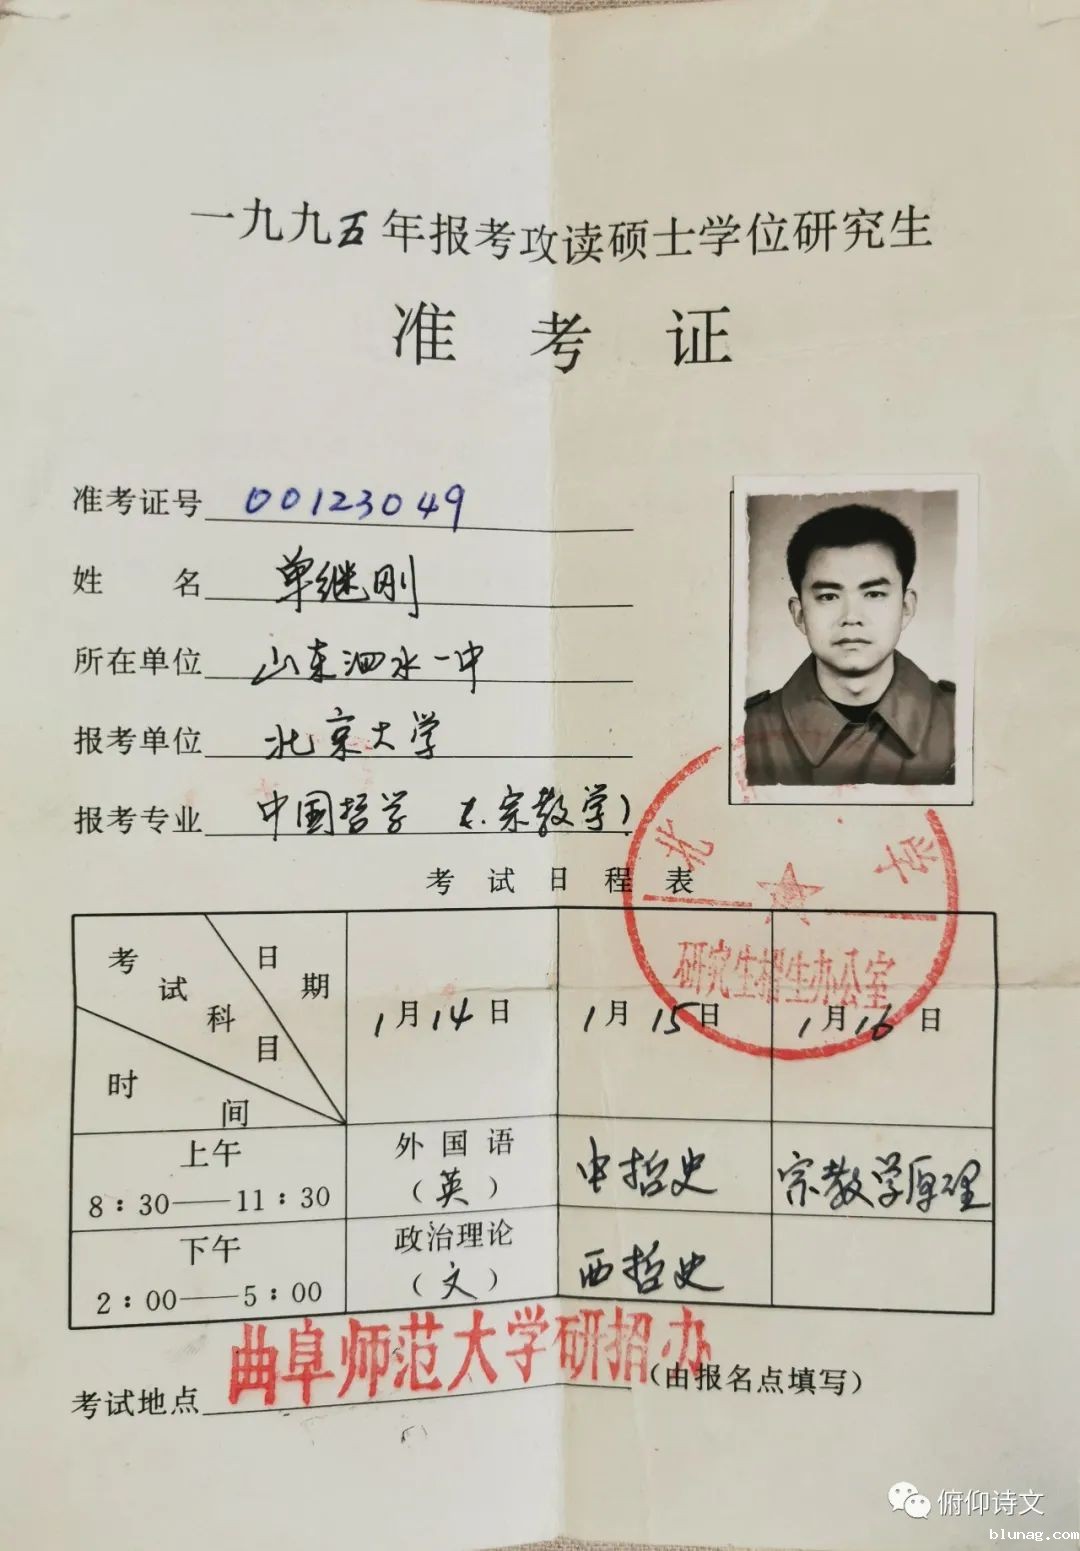 一九九五年报考攻读硕士学位研究生
准考证
准考证号 00123049
姓名 单继刚
所在单位 山东泗水一中
报考单位 北京大学
报考专业 中国哲学 (宗教学)
考试日程表
考试科目 日期 时间
1月14日 1月15日 1月16日
北 学
研究生招生办公室
上午 8:30——11:30 外国语(英) 中哲史 宗教学原理
下午 2:00——5:00 政治理论(文) 西哲史
考试地点 曲阜师范大学研招办 (由报名点填写)
俯仰诗文
blunag.com